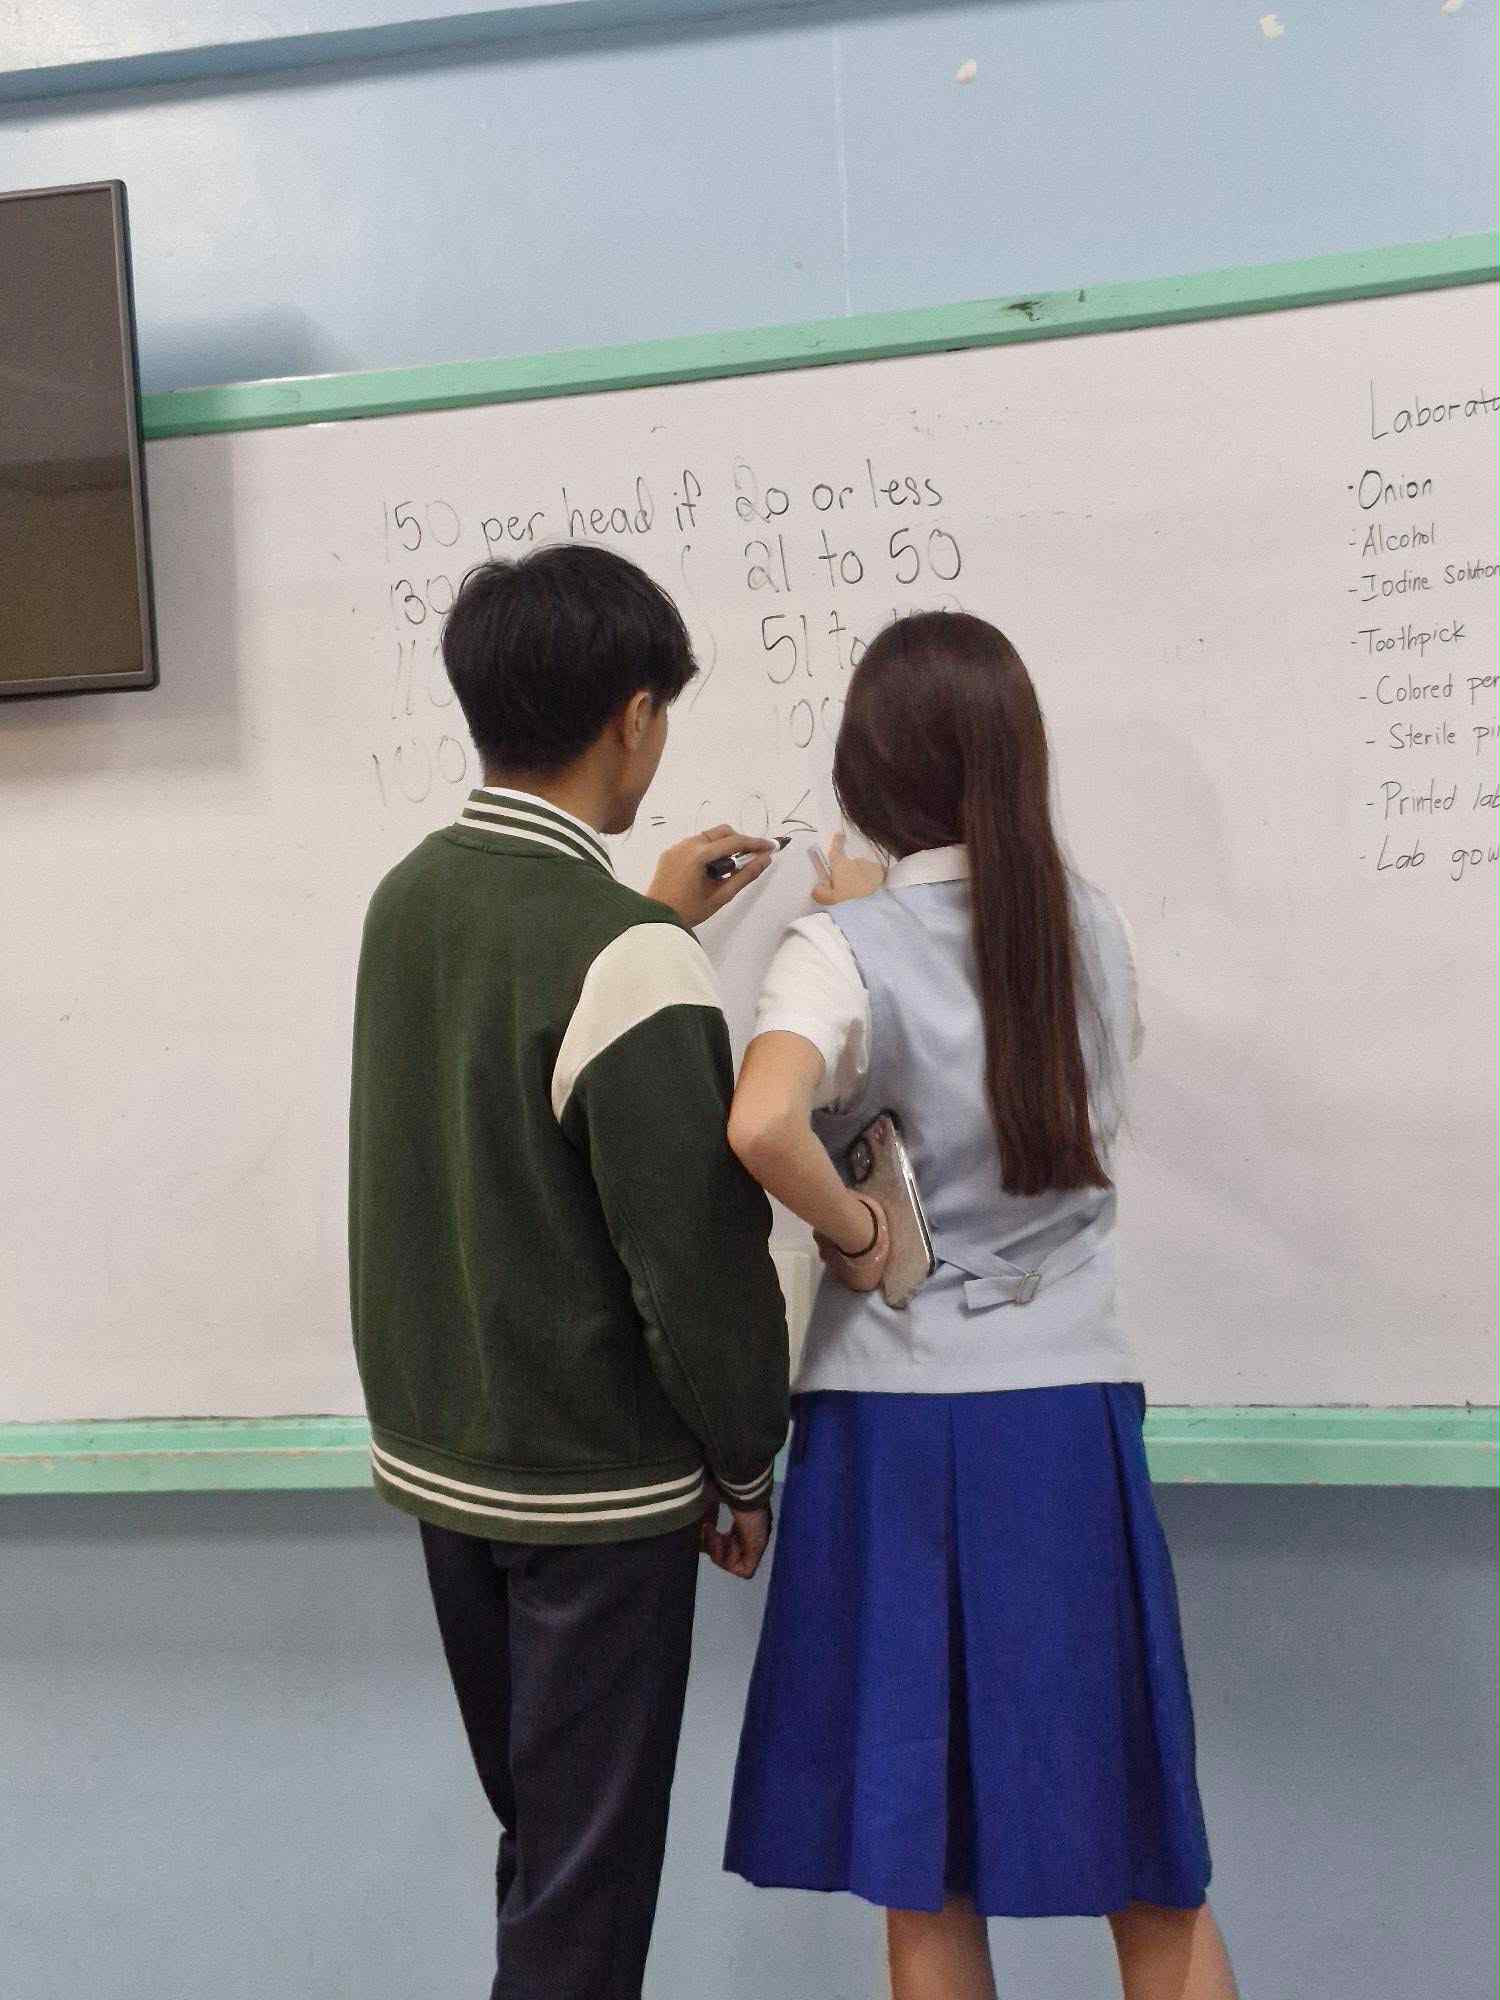 150 per head if 20 or less
130 21 to 50
110 51 to
100
= <
Laborato
·Onion
-Alcohol
-Iodine Solution
-Toothpick
- Colored per
- Sterile
- Printed lab
- Lab gow